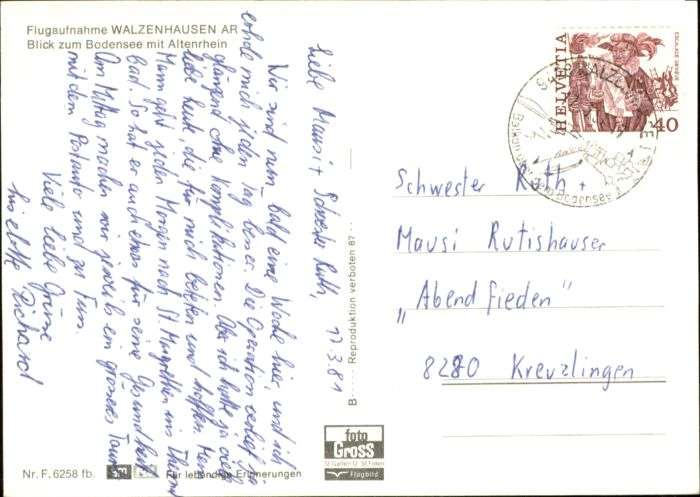 Flugaufnahme WALZENHAUSEN AR
Blick zum Bodensee mit Altenrhein
Liebe Mausi + Schwester Ruth, 17.3.81
Wir sind nun bald eine Woche hier und ich
erhole mich jeden Tag besser. Die Operation verlief ja
glänzend ohne Komplikationen. Aber ich hatte ja viele
liebe Leute, die für mich beteten und hofften. Mein
Mann geht jeden Morgen nach St. Margrethen ins Thermal
bad. So hat er auch etwas für seine Gesundheit
Am Mittag machen wir jeweils ein grösseres
mit dem Postauto und zu Fuss.
Viele liebe Grüsse
Richard
HELVETIA
ESCALADE GENÈVE
40
WALZENH
Schwester Ruth +
Mausi Rutishauser
„Abendfrieden"
8280 Kreuzlingen
B Reproduktion verboten 67
foto
GROSS
St. Gallen
Flugbild
Nr. F. 6258 fb.
Für lebendige Erinnerungen